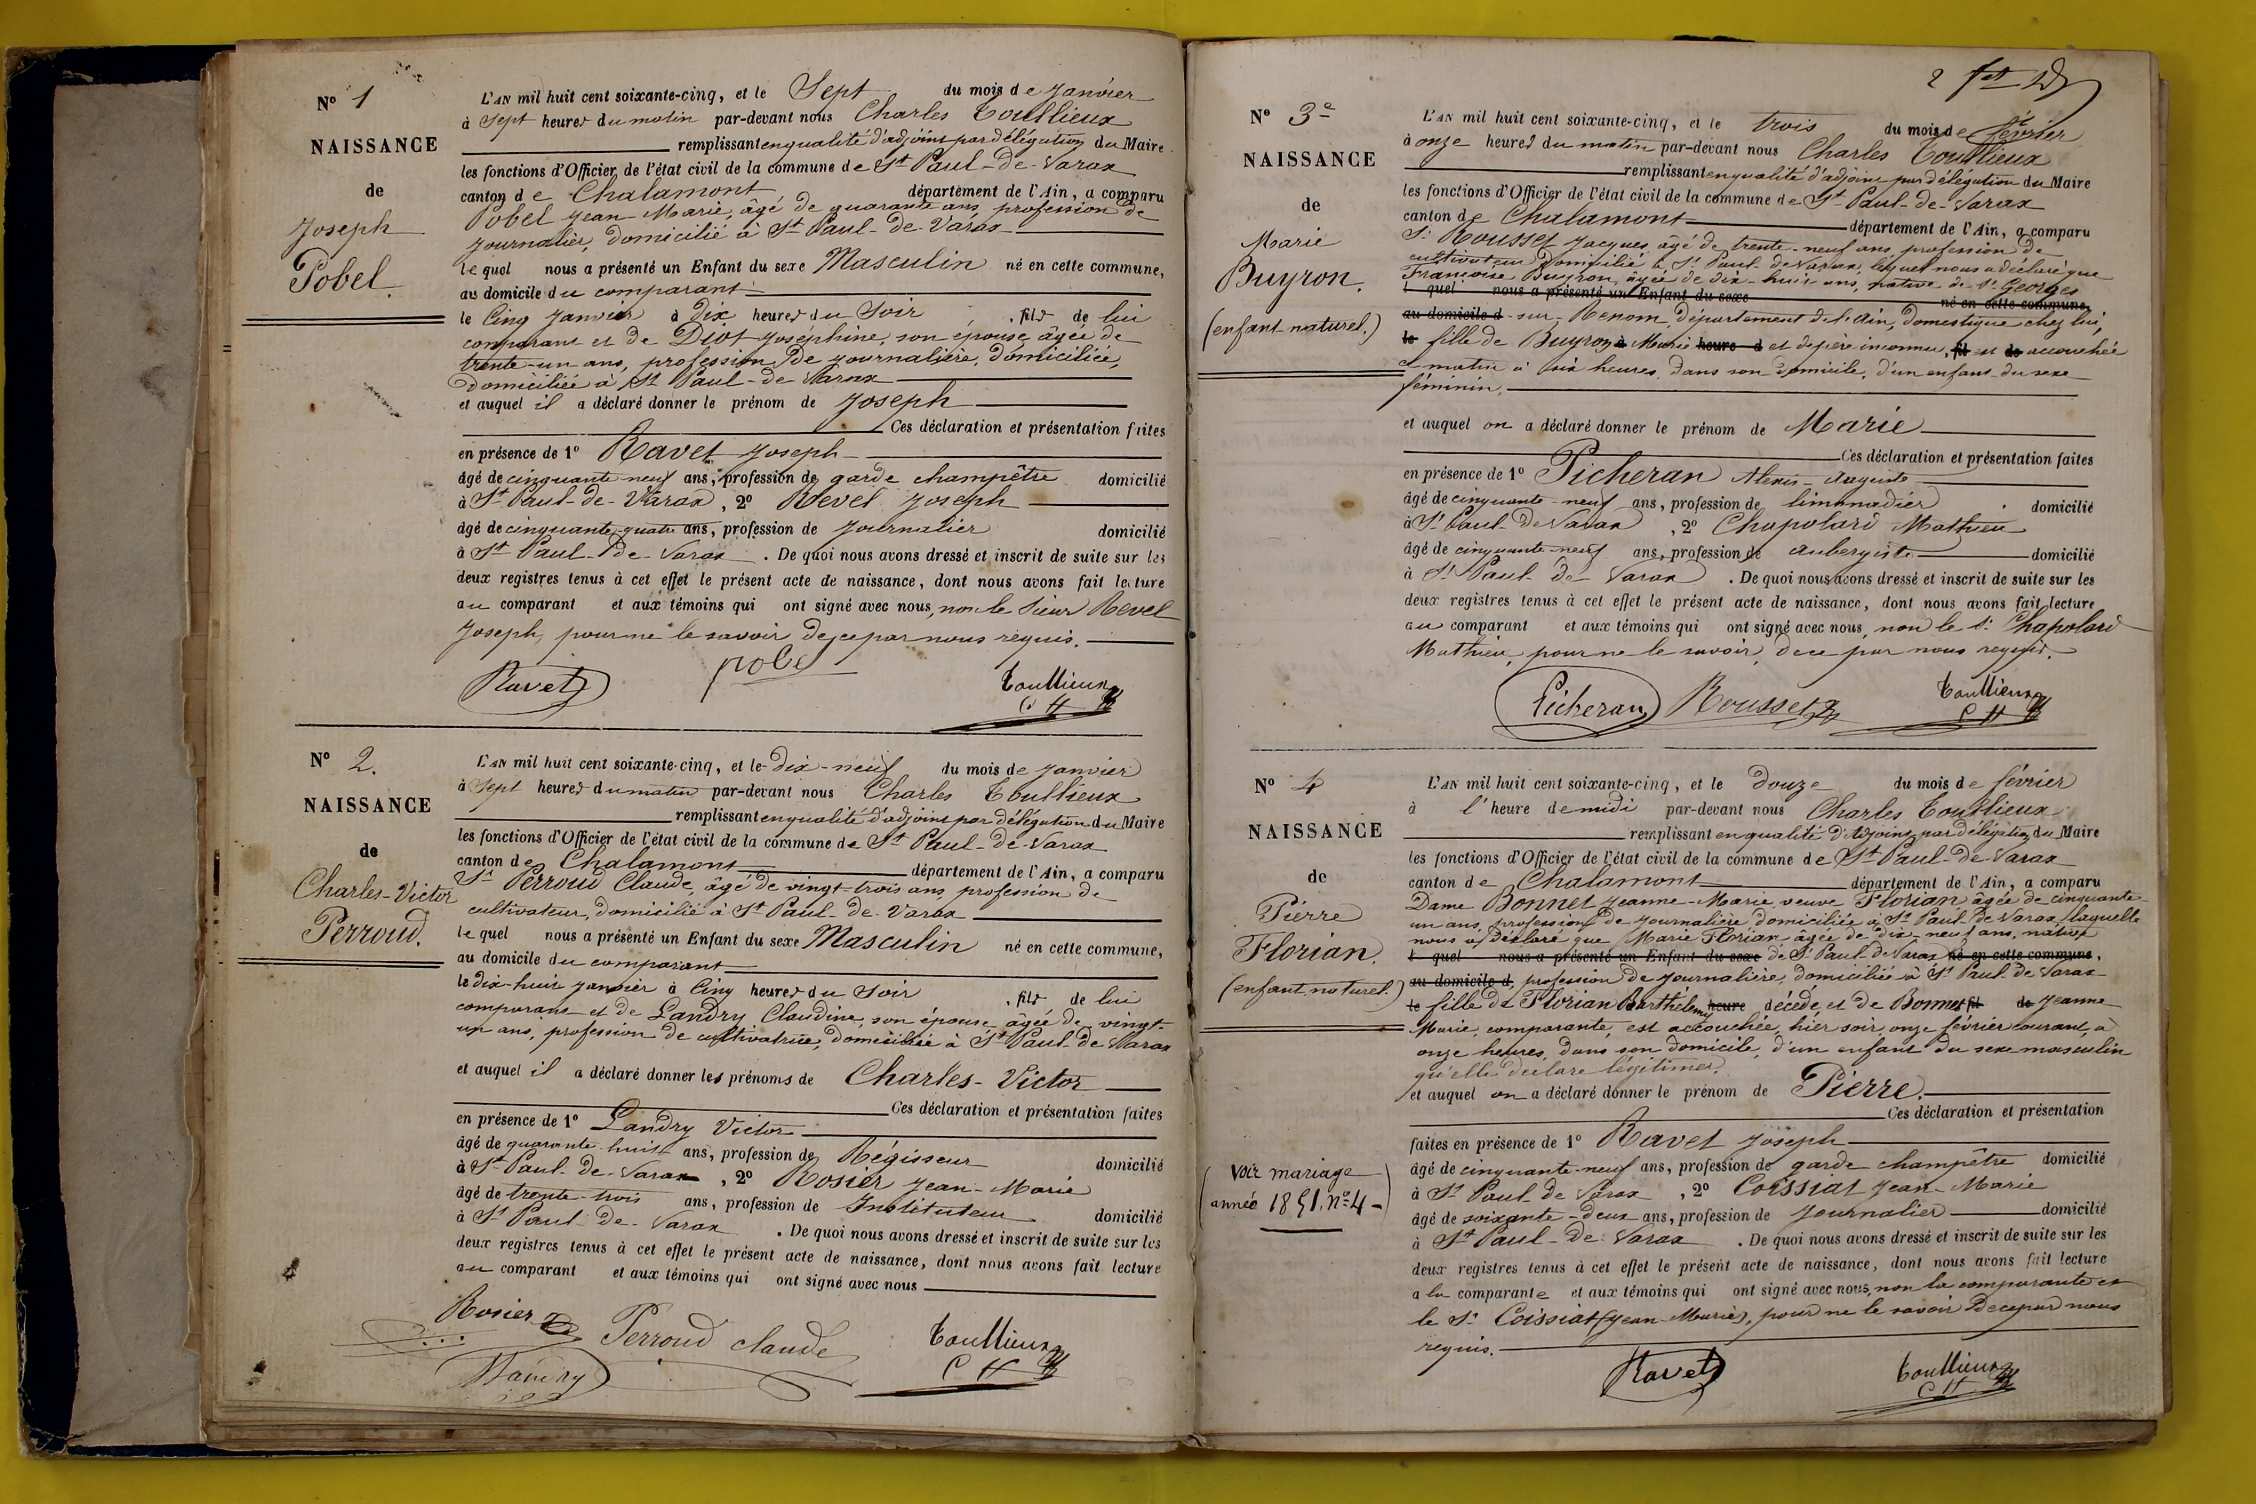 N° 1
NAISSANCE
de
Joseph
Pobel.
L'AN mil huit cent soixante-cinq, et le Sept du mois de Janvier
à Sept heures du matin par-devant nous Charles Toullieux
remplissant en qualité d'adjoint par délégation du Maire
les fonctions d'Officier de l'état civil de la commune de St Paul-de-Varax
canton de Chalamont département de l'Ain, a comparu
Pobel Jean-Marie, âgé de quarante ans, profession de
Journalier, domicilié à St Paul-de-Varax
lequel nous a présenté un Enfant du sexe Masculin né en cette commune,
au domicile du comparant
le Cinq Janvier à Dix heures du Soir , fils de lui
comparant et de Diot Joséphine, son épouse, âgée de
trente-un ans, profession de journalière, domiciliée,
domiciliée à St Paul-de-Varax
et auquel il a déclaré donner le prénom de Joseph
Ces déclaration et présentation faites
en présence de 1° Ravet Joseph
âgé de cinquante-neuf ans, profession de garde champêtre domicilié
à St Paul-de-Varax, 2° Revel Joseph
âgé de cinquante-quatre ans, profession de Journalier domicilié
à St Paul-de-Varax. De quoi nous avons dressé et inscrit de suite sur les
deux registres tenus à cet effet le présent acte de naissance, dont nous avons fait lecture
au comparant et aux témoins qui ont signé avec nous, non le Sieur Revel
Joseph, pour ne le savoir de ce par nous requis.
Ravet pobel Toullieux
CH
N° 2.
NAISSANCE
de
Charles-Victor
Perroud.
L'AN mil huit cent soixante-cinq, et le dix-neuf du mois de Janvier
à Sept heures du matin par-devant nous Charles Toullieux
remplissant en qualité d'adjoint par délégation du Maire
les fonctions d'Officier de l'état civil de la commune de St Paul-de-Varax
canton de Chalamont département de l'Ain, a comparu
Sr Perroud Claude, âgé de vingt-trois ans, profession de
cultivateur, domicilié à St Paul-de-Varax
lequel nous a présenté un Enfant du sexe Masculin né en cette commune,
au domicile du comparant
le Dix-huit Janvier à Cinq heures du Soir , fils de lui
comparant et de Landry Claudine, son épouse, âgée de vingt-
un ans, profession de cultivatrice, domiciliée à St Paul-de-Varax
et auquel il a déclaré donner les prénoms de Charles-Victor
Ces déclaration et présentation faites
en présence de 1° Landry Victor
âgé de quarante-huit ans, profession de Régisseur domicilié
à St Paul-de-Varax, 2° Rosier Jean-Marie
âgé de trente-trois ans, profession de Instituteur domicilié
à St Paul-de-Varax. De quoi nous avons dressé et inscrit de suite sur les
deux registres tenus à cet effet le présent acte de naissance, dont nous avons fait lecture
au comparant et aux témoins qui ont signé avec nous
Rosier Perroud claude Toullieux
Landry CH
2
N° 3e
NAISSANCE
de
Marie
Buyron.
(enfant naturel.)
L'AN mil huit cent soixante-cinq, et le trois du mois de février
à onze heures du matin par-devant nous Charles Toullieux
remplissant en qualité d'adjoint par délégation du Maire
les fonctions d'Officier de l'état civil de la commune de St Paul-de-Varax
canton de Chalamont département de l'Ain, a comparu
Sr Rousset Jacques, âgé de trente-neuf ans, profession de
cultivateur domicilié à St Paul-de-Varax, lequel nous a déclaré que
Françoise Buyron, âgée de dix-huit ans, native de St Georges
l quel nous a présenté un Enfant du sexe né en cette commune,
au domicile d sur-Renom, département de l'Ain, domestique chez lui,
le fille de Buyron à Marie heure d et de père inconnu, fil est de accouchée
ce matin à six heures, dans son domicile, d'un enfant du sexe
féminin,
et auquel on a déclaré donner le prénom de Marie
Ces déclaration et présentation faites
en présence de 1° Picheran Alexis-Auguste
âgé de cinquante-neuf ans, profession de limonadier domicilié
à St Paul-de-Varax, 2° Chapolard Mathieu
âgé de cinquante-neuf ans, profession de aubergiste domicilié
à St Paul-de-Varax. De quoi nous avons dressé et inscrit de suite sur les
deux registres tenus à cet effet le présent acte de naissance, dont nous avons fait lecture
au comparant et aux témoins qui ont signé avec nous, non le Sr Chapolard
Mathieu, pour ne le savoir, de ce par nous requis.
Picheran Rousset Toullieux
CH
N° 4
NAISSANCE
de
Pierre
Florian.
(enfant naturel.)
(Voir mariage
année 1851. n° 4-)
L'AN mil huit cent soixante-cinq, et le douze du mois de février
à l'heure de midi par-devant nous Charles Toullieux
remplissant en qualité d'Adjoint par délégation du Maire
les fonctions d'Officier de l'état civil de la commune de St Paul-de-Varax
canton de Chalamont département de l'Ain, a comparu
Dame Bonnet Jeanne-Marie, veuve Florian âgée de cinquante-
un ans, profession de journalière domiciliée à St Paul-de-Varax, laquelle
nous a déclaré que Marie Florian âgée de dix-neuf ans, native
l quel nous a présenté un Enfant du sexe de St Paul de Varax né en cette commune,
au domicile d, profession de journalière, domiciliée à St Paul de Varax
le fille de Florian Barthélemy heure décédé, et de Bonnet fil de Jeanne
Marie, comparante, est accouchée, hier soir, onze février courant, à
onze heures, dans son domicile, d'un enfant du sexe masculin
qu'elle déclare légitimer.
et auquel on a déclaré donner le prénom de Pierre.
Ces déclaration et présentation
faites en présence de 1° Ravet Joseph
âgé de cinquante-neuf ans, profession de garde champêtre domicilié
à St Paul de Varax, 2° Coissiat Jean-Marie
âgé de soixante-deux ans, profession de Journalier domicilié
à St Paul-de-Varax. De quoi nous avons dressé et inscrit de suite sur les
deux registres tenus à cet effet le présent acte de naissance, dont nous avons fait lecture
a la comparante et aux témoins qui ont signé avec nous, non la comparante et
le Sr Coissiat (Jean-Marie), pour ne le savoir de ce par nous
requis.
Ravet Toullieux
CH